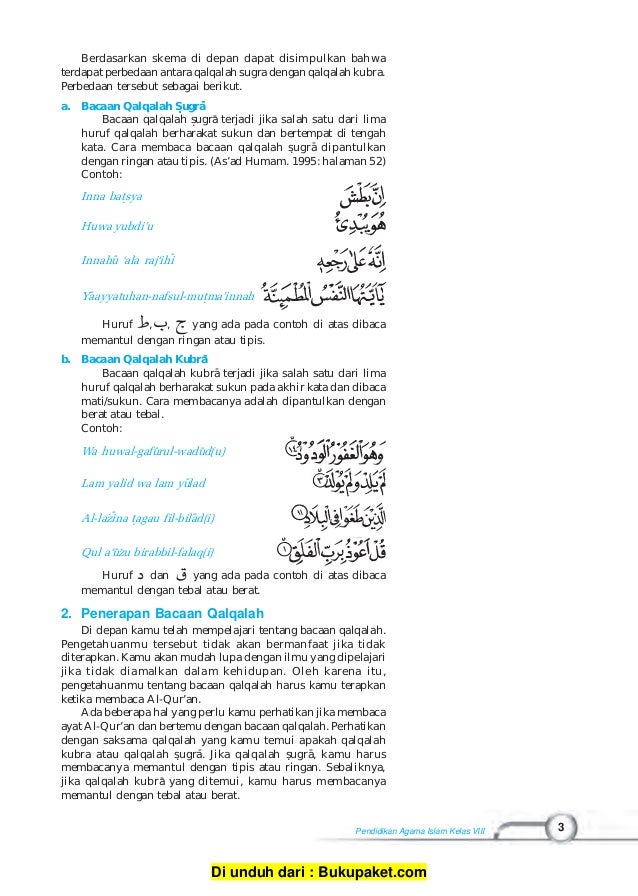 Berdasarkan skema di depan dapat disimpulkan bahwa
terdapat perbedaan antara qalqalah sugra dengan qalqalah kubra.
Perbedaan tersebut sebagai berikut.
a. Bacaan Qalqalah Ṣugrā
Bacaan qalqalah ṣugrā terjadi jika salah satu dari lima
huruf qalqalah berharakat sukun dan bertempat di tengah
kata. Cara membaca bacaan qalqalah ṣugrā dipantulkan
dengan ringan atau tipis. (As'ad Humam. 1995: halaman 52)
Contoh:
Inna baṭsya اِنَّ بَطْشَ
Huwa yubdi'u هُوَ يُبْدِئُ
Innahū 'ala raj'ihī اِنَّهٗ عَلٰى رَجْعِهٖ
Yaayyatuhan-nafsul-muṭma'innah يٰٓاَيَّتُهَا النَّفْسُ الْمُطْمَىِٕنَّةُ
Huruf ط, ب, ج yang ada pada contoh di atas dibaca
memantul dengan ringan atau tipis.
b. Bacaan Qalqalah Kubrā
Bacaan qalqalah kubrā terjadi jika salah satu dari lima
huruf qalqalah berharakat sukun pada akhir kata dan dibaca
mati/sukun. Cara membacanya adalah dipantulkan dengan
berat atau tebal.
Contoh:
Wa huwal-gafūrul-wadūd(u) وَهُوَ الْغَفُوْرُ الْوَدُوْدُ ١٤
Lam yalid wa lam yūlad لَمْ يَلِدْ وَلَمْ يُوْلَدْ ٣
Al-lażīna ṭagau fil-bilād(i) الَّذِيْنَ طَغَوْا فِى الْبِلَادِ ١١
Qul a'ūżu birabbil-falaq(i) قُلْ اَعُوْذُ بِرَبِّ الْفَلَقِ ١
Huruf د dan ق yang ada pada contoh di atas dibaca
memantul dengan tebal atau berat.
2. Penerapan Bacaan Qalqalah
Di depan kamu telah mempelajari tentang bacaan qalqalah.
Pengetahuanmu tersebut tidak akan bermanfaat jika tidak
diterapkan. Kamu akan mudah lupa dengan ilmu yang dipelajari
jika tidak diamalkan dalam kehidupan. Oleh karena itu,
pengetahuanmu tentang bacaan qalqalah harus kamu terapkan
ketika membaca Al-Qur'an.
Ada beberapa hal yang perlu kamu perhatikan jika membaca
ayat Al-Qur'an dan bertemu dengan bacaan qalqalah. Perhatikan
dengan saksama qalqalah yang kamu temui apakah qalqalah
kubra atau qalqalah ṣugrā. Jika qalqalah ṣugrā, kamu harus
membacanya memantul dengan tipis atau ringan. Sebaliknya,
jika qalqalah kubrā yang ditemui, kamu harus membacanya
memantul dengan tebal atau berat.
Pendidikan Agama Islam Kelas VIII 3
Di unduh dari : Bukupaket.com